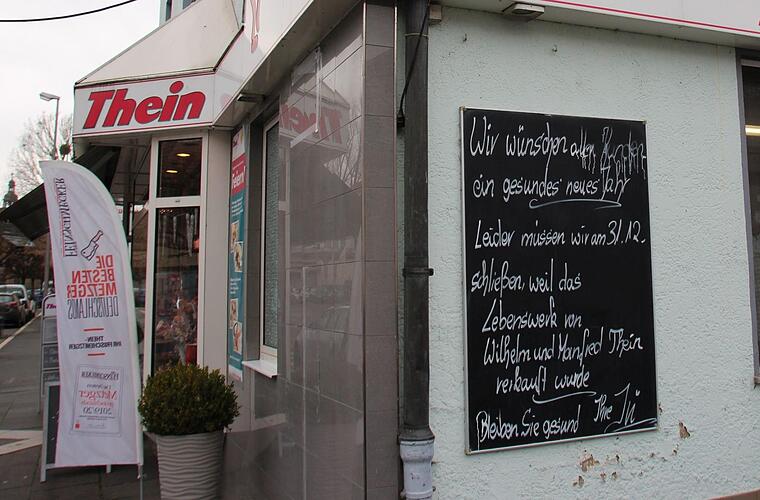 Thein
FEINSCHMECKER
DIE
BESTEN
METZGER
DEUTSCHLANDS
THEIN
IHR FRISCHEMETZGER
FEINSCHMECKER
Metzger
2019/20
feiern!
Wir wünschen allen Kunden
ein gesundes neues Jahr
Leider müssen wir am 31.12.
schließen, weil das
Lebenswerk von
Wilhelm und Manfred Thein
verkauft wurde
Bleiben Sie gesund Ihre Ju